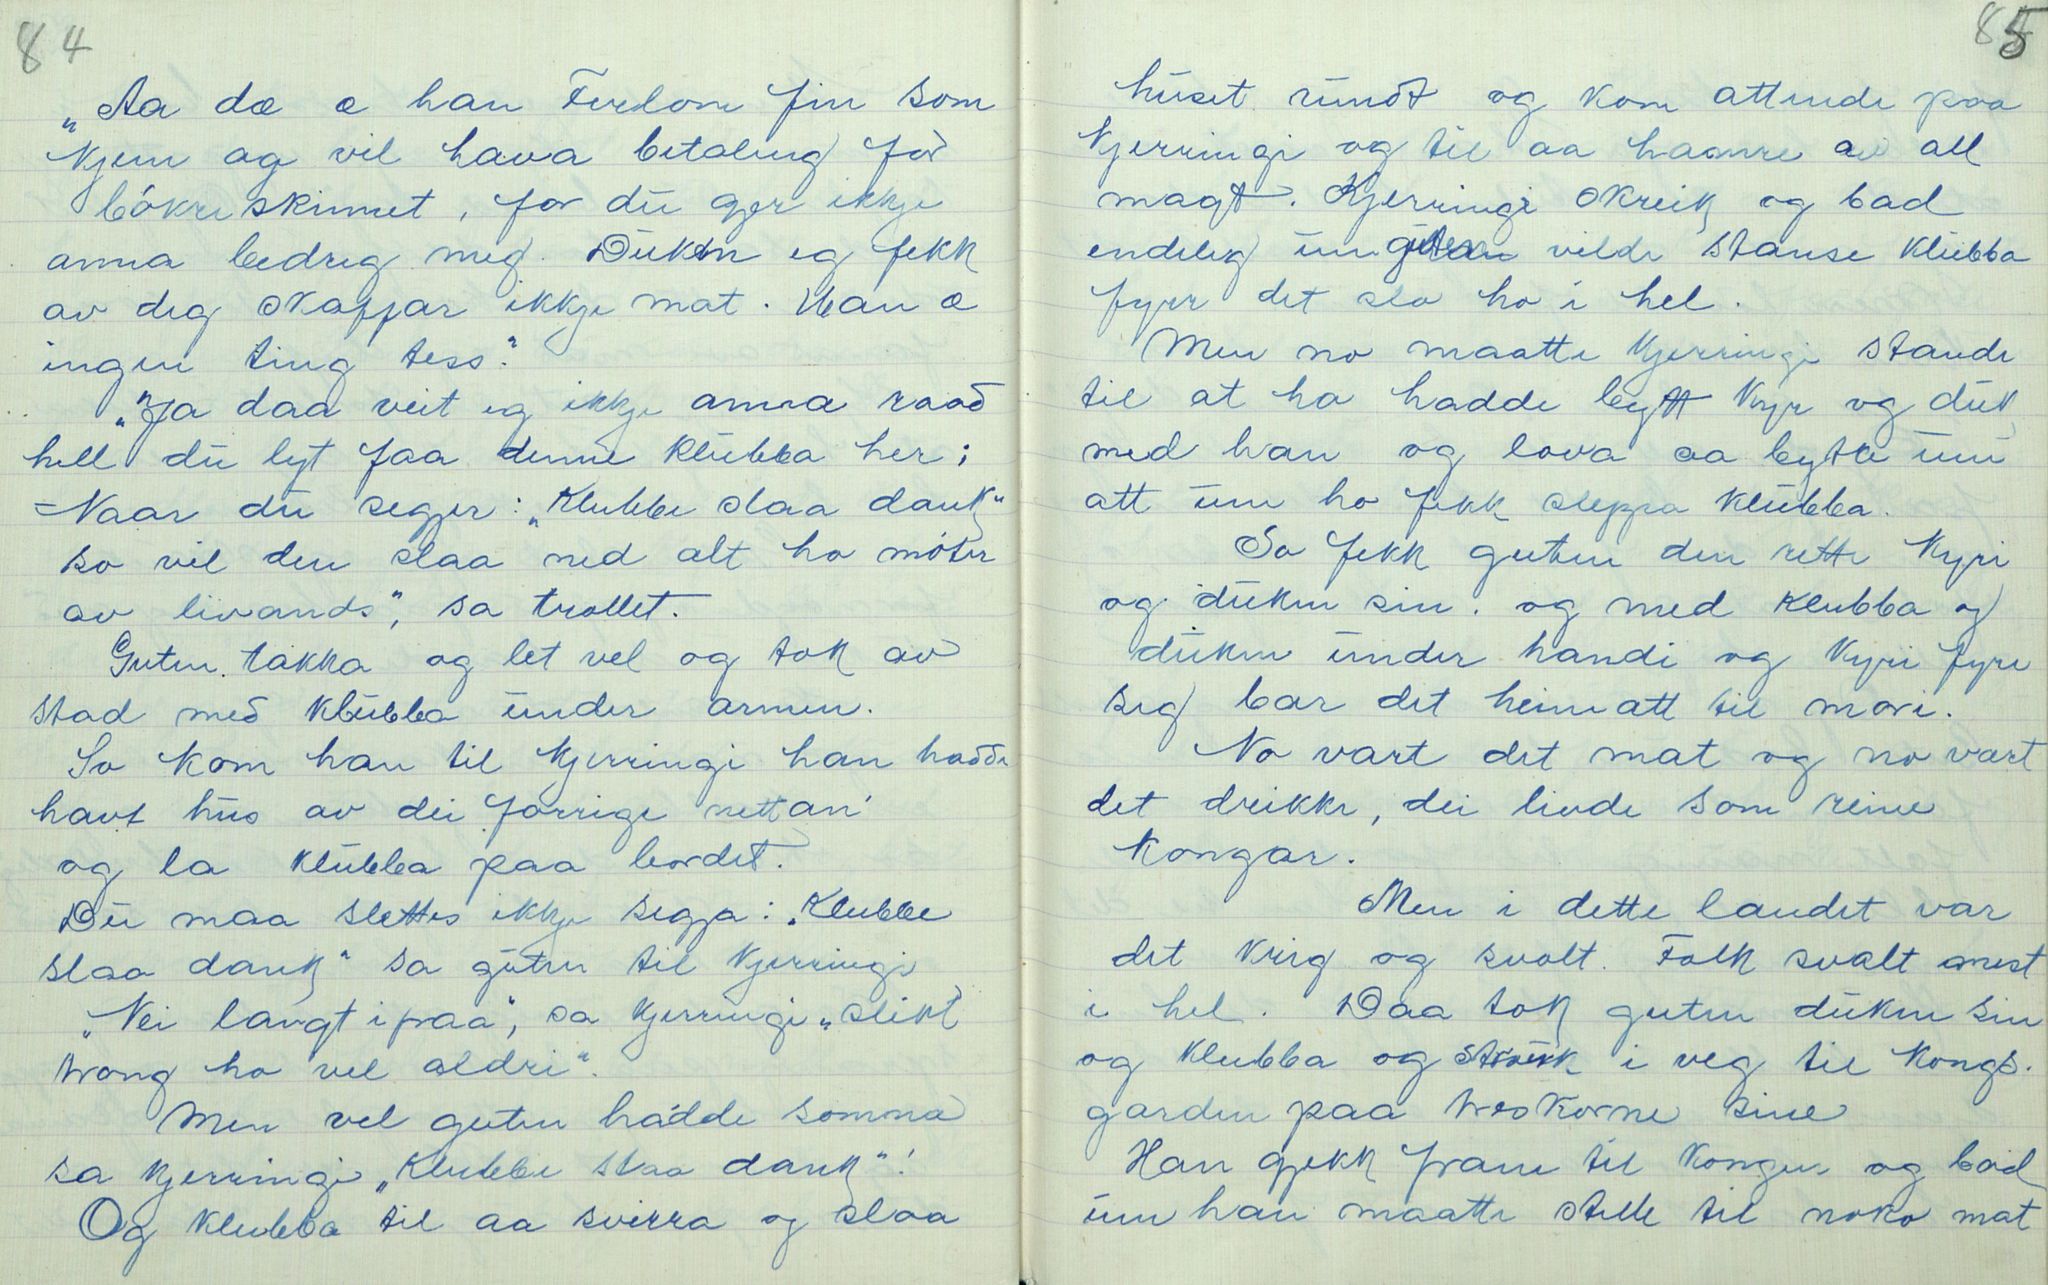 84
„Aa dæ æ han Ferlom fin som
kjem ag vil hava betaling for
bókreskinnet, for du gjer ikkje
anna bedreg meg. Duken eg fekk
av deg skaffar ikkje mat. Han æ
ingen ting tess."
„Ja daa veit eg ikkje anna raad
hell du lyt faa denne klubba her;
Naar du segjer: „Klubbe slaa dank"
so vil den slaa ned alt ho móter
av livands", sa trollet.
Guten takka og let vel og tok av
stad med klubba under armen.
So kom han til kjerringi han hadde
havt hus av dei forrige nettan'
og la klubba paa bordet.
Du maa slettes ikkje segja: „Klubbe
slaa dank" sa guten til kjerringi
„Nei langt ipraa", sa kjerringi „slikt
trong ho vel aldri".
Men vel guten hadde somna
sa kjerringi „Klubbe slaa dank"!
Og klubba til aa svirra og slaa
85
huset rundt og kom attende paa
kjerringi og til aa hamre av all
magt. Kjerringi skreik og bad
endeleg um guten vilde stanse klubba
fyrr det slo ho i hel.
Men no maatte kjerringi stande
til at ho hadde bytt kyr og duk
med han og lova aa byte um
att um ho fekk sleppa klubba.
So fekk guten den rette kyri
og duken sin. og med klubba og
duken under handi og kyri fyre
seg bar det heimatt til mori.
No vart det mat og no vart
det drikke, dei livde som reine
kongar.
Men i dette landet var
det krig og svolt. Folk svalt mest
i hel. Daa tok guten duken sin
og klubba og strauk i veg til kongs.
garden paa treskorne sine
Han gjekk fram til kongen og bad
um han maatte stelle til noko mat